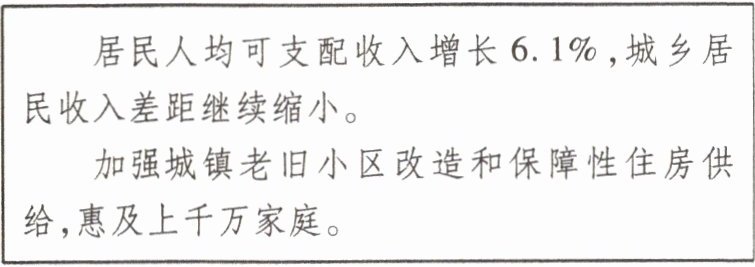 居民人均可支配收入增长6.1%,城乡居
民收入差距继续缩小。
加强城镇老旧小区改造和保障性住房供
给,惠及上千万家庭。